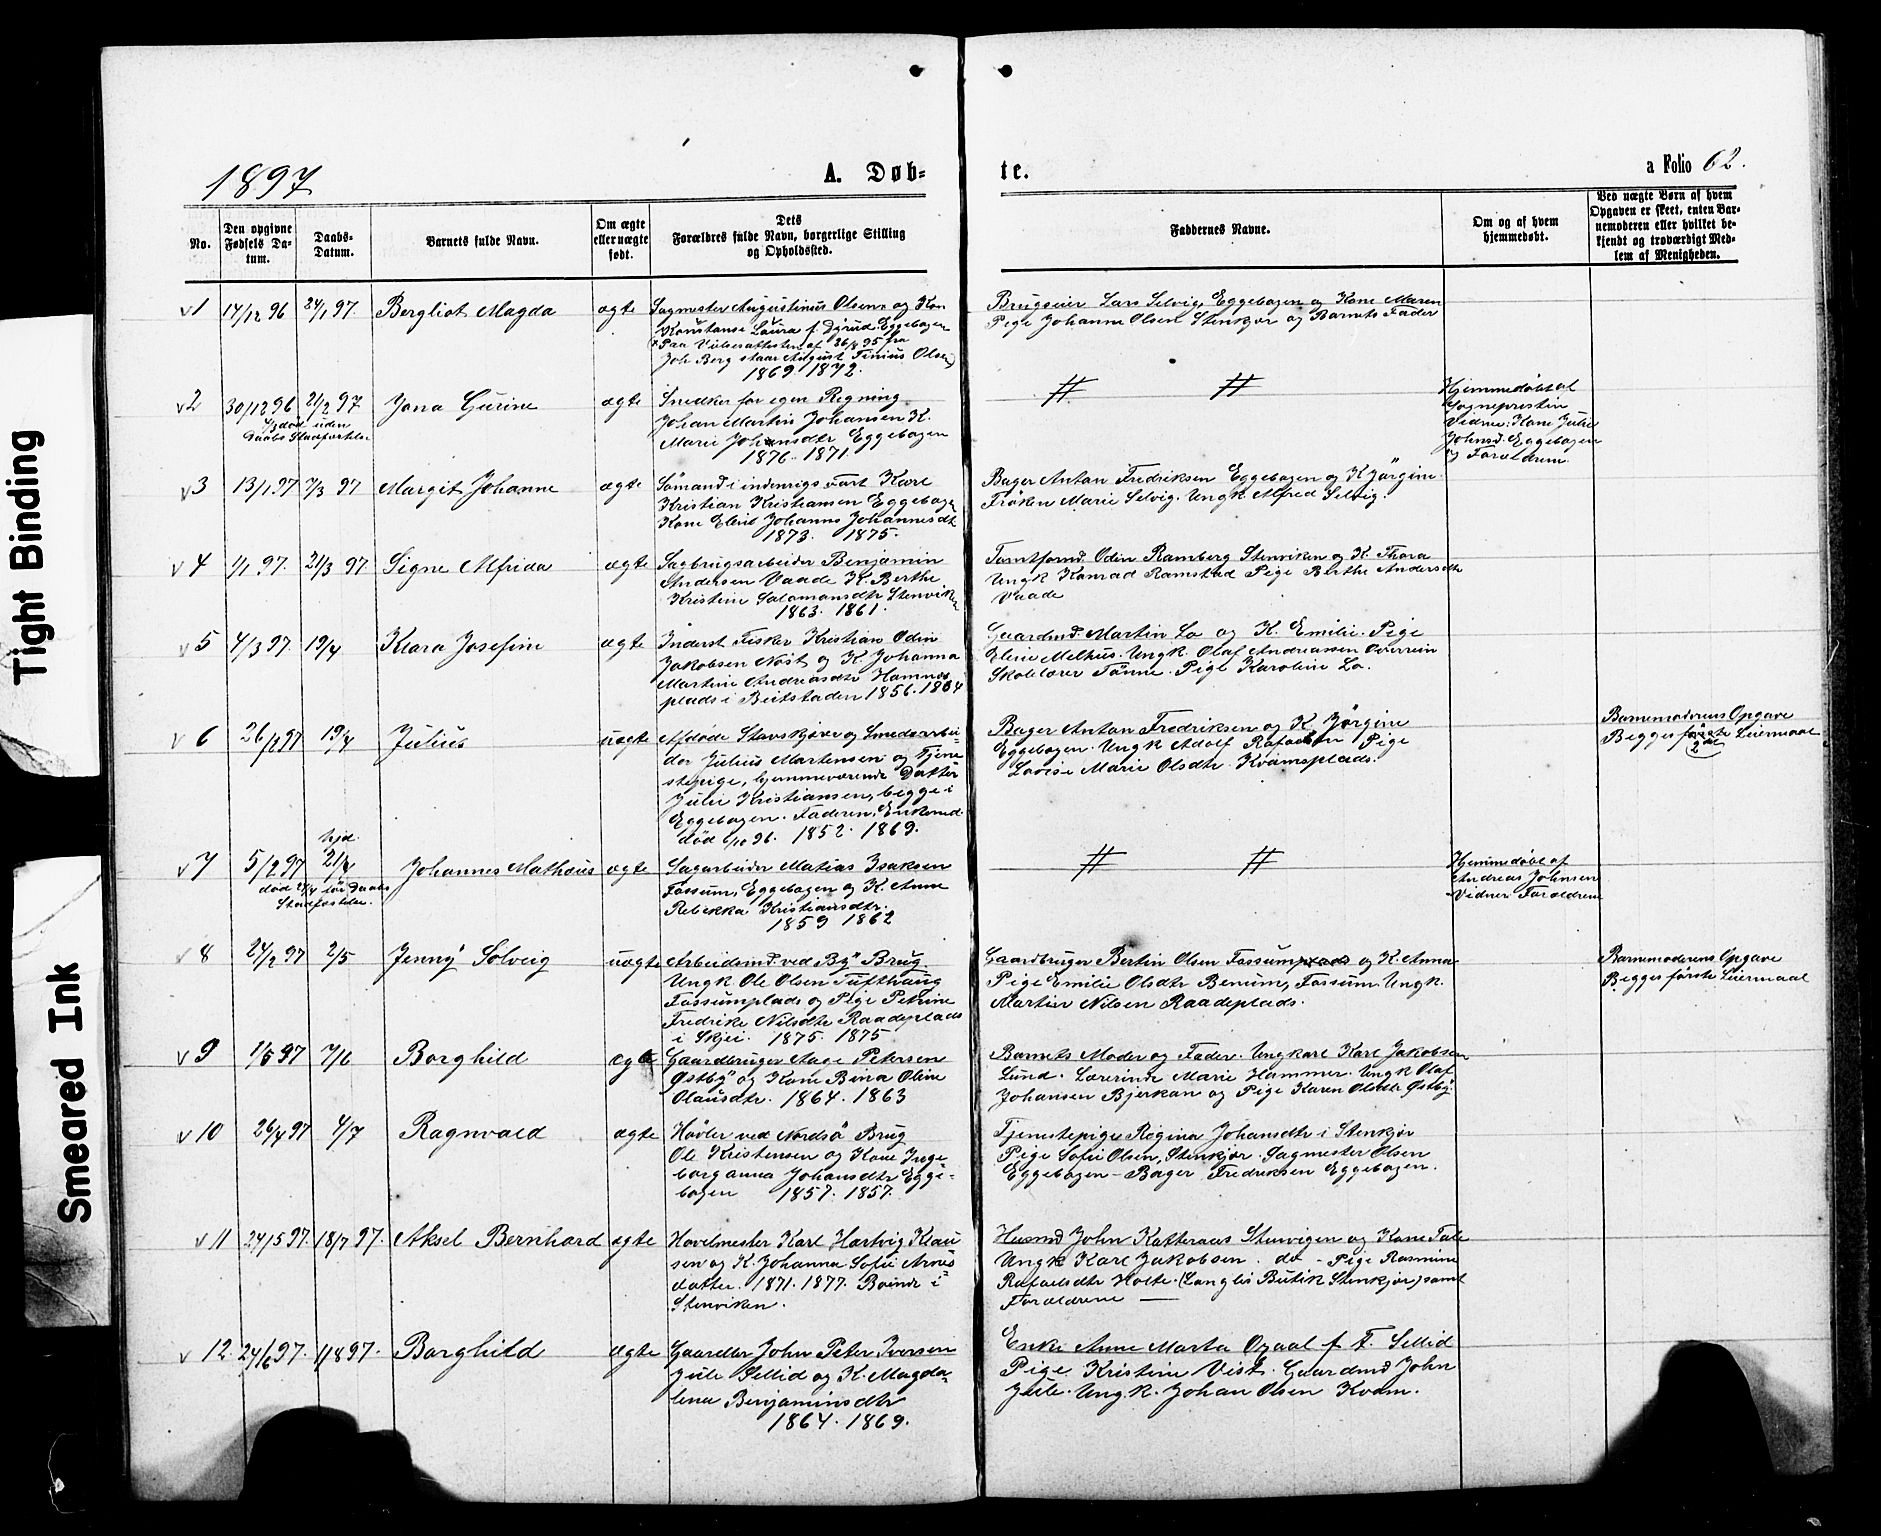 Tight Binding
Smeared Ink
1897
A. Døb-
te.
a Folio 62.
No.
Den opgivne Fødsels Da-
tum.
Daabs-
Datum.
Barnets fulde Navn.
Om ægte
eller uægte
født.
Dets
Forældres fulde Navn, borgerlige Stilling
og Opholdssted.
Faddernes Navne.
Om og af hvem
hjemmedøbt.
Ved uægte Børn af hvem
Opgaven er skeet, enten Bar-
nemoderen eller hvilket be-
kjendt og troværdigt Med-
lem af Menigheden.
v1 17/12 96 24/1 97. Bergliot Magda ægte
Sagmester Augustinus Olsen og Kon
Konstanse Laura f. Dyrud Eggebogen
(Paa Vielsesattesten af 26/ 95 fra
Joh Berg staar August Tinius Olsen)
1869. 1872.
Brugseier Lars Selvig, Eggebogen og Kone Maren
Pige Johanne Olsen Stenkjær og Barnets Fader
v2 30/12 96 21/2 97 Jona Gurine ægte
død uden
Daabs Stadfæstelse
Snedker for egen Regning
Johan Martin Johansen K.
Marie Johansdtr Eggebogen
1876. 1871.
# #
Hjemmedøbt af
Sognepresten
Vidne: Kone Julie
Johnsd. Eggebogen
og Forældrene
v3 13/1 97 7/3 97 Margit Johanne ægte
Sømand i indenrigs fart Karl
Kristian Kristiansen Eggebogen
Kone Eline Johanna Johannesdtr
1873. 1875.
Bager Anton Fredriksen Eggebogen og K Jørgine
Frøken Marie Selvig. Ungk Alfred Selvig.
v4 1/1 97. 21/3 97. Signe Alfrida ægte
Sagbrugsarbeider Benjamin
Andersen Vaade K. Berthe
Kristine Salamonsdtr Stenviken
1863. 1861.
Tomtformd. Odin Ramberg Stenviken og K. Thora
Ungk Konrad Ramstad Pige Berthe Andersdtr
Vaade
v5 4/3 97. 19/4 Klara Josefine ægte
Inderst Fisker Kristian Odin
Jakobsen Nøst og K. Johanna
Martine Andreasdtr Hamnes
plads i Beitstaden 1856. 1864
Gaardmd. Martin Lø og K. Emilie. Pige
Eline Melhus. Ungk. Olaf Andreassen Overrein
Skolelærer Tønne. Pige Karoline Lø.
v6 26/2 97 19/4 Julius uægte
Afdøde Stavskjærer og Smedearbei-
der Julius Martensen og Tjene
stepige, hjemmeværende Datter
Julie Kristiansen, begge i
Eggebogen. Faderen, Enkemd.
død 6/10 96. 1852. 1869.
Bager Anton Fredriksen og K. Jørgine
Eggebogen. Ungk Adolf Rafaelsen Pige
Lovise Marie Olsdtr. Kvamsplads.
Barnemoderens Opgave
Begges første Leiermaal
2det
v7 5/2 97 hjd. 21/4 Johannes Mathæus ægte
død 2/4 før Daabs
Stadfæstelse.
Sagarbeider Matias Isaksen
Fossum, Eggebogen og K. Anne
Rebekka Kristiansdtr.
1859 1862
# #
Hjemmedøbt af
Andreas Johnsen
Vidner Forældrene
v8 24/2 97 2/5 Jenny Solveig uægte
Arbeidsmd ved By Brug
Ungk Ole Olsen Tufthaug
Fossumplads og Pige Petrine
Fredrike Nilsdtr Raadeplads
i Skjei. 1875. 1875
Gaardbruger Bertin Olsen Fossum og K. Anna
Pige Emilie Olsdtr Benum, Fossum. Ungk.
Martin Nilsen Raadeplads.
Barnemoderens Opgave
Begges første Leiermaal
v9 1/5 97 7/6 Borghild ægte
Gaardbruger Aage Petersen
Østby og Kone Bina Oline
Olausdtr. 1864. 1863
Barnets Moder og Fader. Ungkarl Karl Jakobsen
Lund. Lærerinde Marie Hammer. Ungk Olaf
Johansen Bjerkan og Pige Karen Olsdtr Østby.
v10 26/4 97 4/7 Ragnvald ægte
Høvler ved Nordsø Brug
Ole Kristensen og Kone Inge
borganna Johansdtr Egge-
bogen 1857. 1857.
Tjenestepige Regina Johansdtr i Stenkjær
Pige Sofie Olsen, Stenkjær. Sagmester Olsen
Eggebogen - Bager Fredriksen Eggebogen.
v11 24/5 97. 18/7 97. Aksel Bernhard ægte
Høvelmester Karl Hartvig Klau
sen og K. Johanna Sofie Arnts
datter. 1871. 1877. Boende i
Stenviken.
Husmd John Katteraas Stenvigen og Kone Tale
Ungk Karl Jakobsen. do - Pige Rasmine
Rafaelsdtr Holte. (Langlis Butik Stenkjær) samt
Forældrene
v12. 24/6 97. 1/8 97. Borghild ægte
Gaardbr John Peter Iversen
Jule Sellid og K. Magda-
lena Benjaminsdtr
1864. 1869.
Enke Anne Marta Opaal f. T. Sellid
Pige Kristine Vist. Gaardmd John
Jule. Ungk. Johan Olsen Kvam.